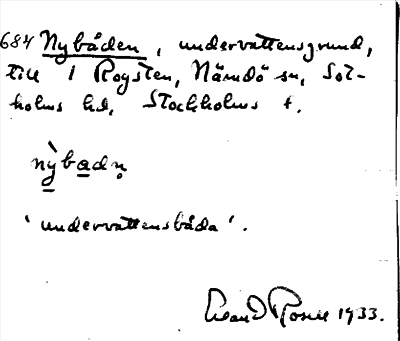 684 Nybåden, undervattensgrund,
till 1 Rogsten, Nämdö sn, Sot-
holms hd, Stockholms l.
nỳbadn̥
'undervattensbåda'.
1933.